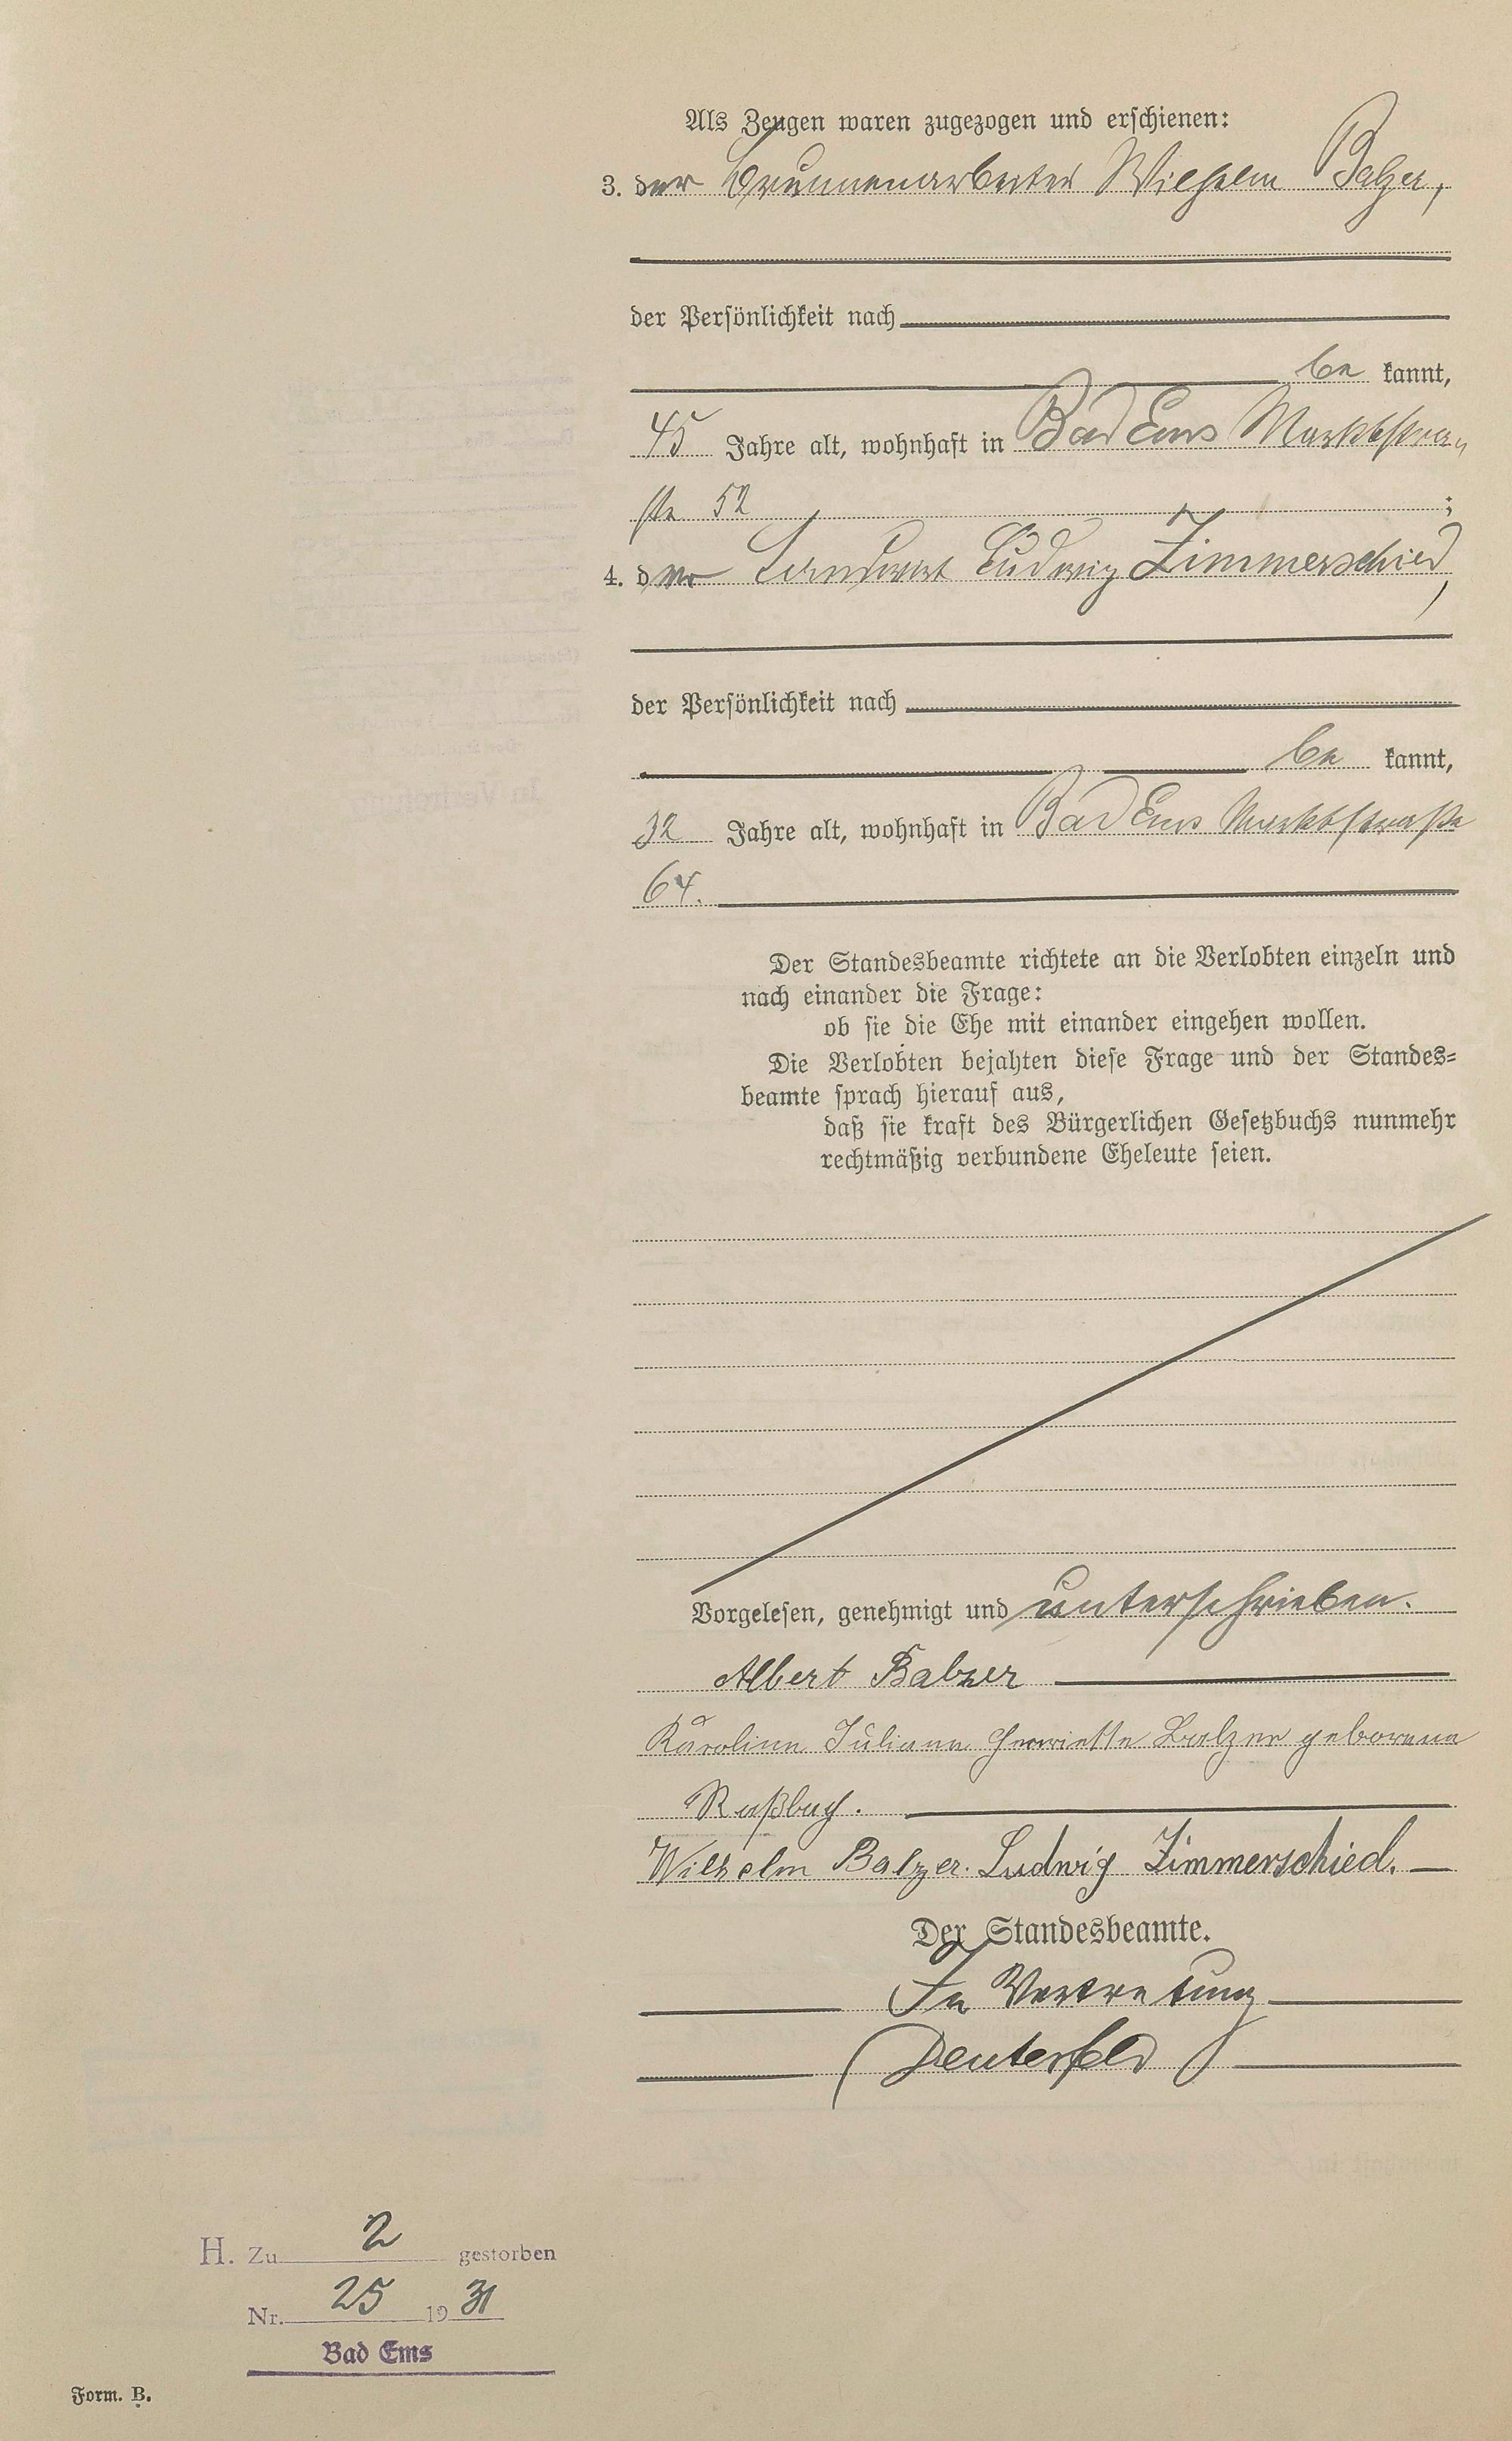 Als Zeugen waren zugezogen und erschienen:
3. der Brunnenarbeiter Wilhelm Balzer,
der Persönlichkeit nach
be kannt,
45 Jahre alt, wohnhaft in Bad Ems Marktstra-
ße 52 ;
4. der Landwirt Ludwig Zimmerschied,
der Persönlichkeit nach
be kannt,
32 Jahre alt, wohnhaft in Bad Ems Marktstraße
64.
Der Standesbeamte richtete an die Verlobten einzeln und
nach einander die Frage:
ob sie die Ehe mit einander eingehen wollen.
Die Verlobten bejahten diese Frage und der Standes-
beamte sprach hierauf aus,
daß sie kraft des Bürgerlichen Gesetzbuchs nunmehr
rechtmäßig verbundene Eheleute seien.
Vorgelesen, genehmigt und unterschrieben.
Albert Balzer
Karoline Juliane Henriette Balzer geborene
Raßbach.
Wilhelm Balzer. Ludwig Zimmerschied.
Der Standesbeamte.
In Vertretung
Deuterfeld
H. Zu 2 gestorben
Nr. 25 1931
Bad Ems
Form. B.